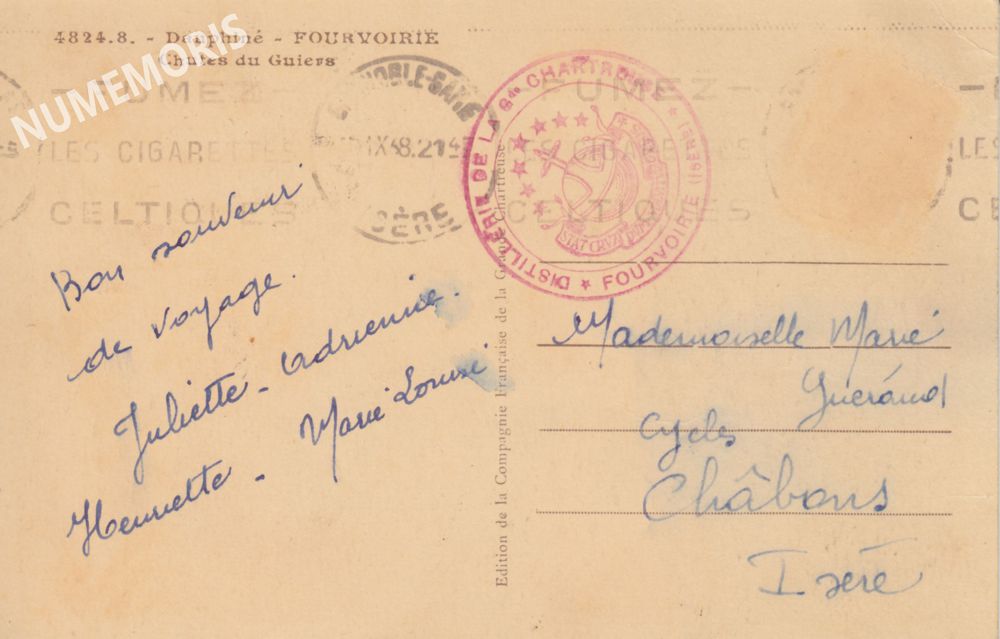 4824.8. - Dauphiné - FOURVOIRIE
Chutes du Guiers
NUMEMORIS
FUMEZ
LES CIGARETTES
CELTIQUES
NOBLE-GARE
IX 8.21
ISÈRE
FUMEZ-
LES CIGARETTES
CELTIQUES
LES
CEL
DISTILLERIE DE LA Gde CHARTREUSE
FOURVOIRIE (ISÈRE)
STAT CRVX
Bon souvenir
de voyage.
Juliette - Adrienne.
Henriette - Marie Louise
Edition de la Compagnie Française de la Grande Chartreuse
Mademoiselle Marie
Guéraud
Cycles
Châbons
Isère